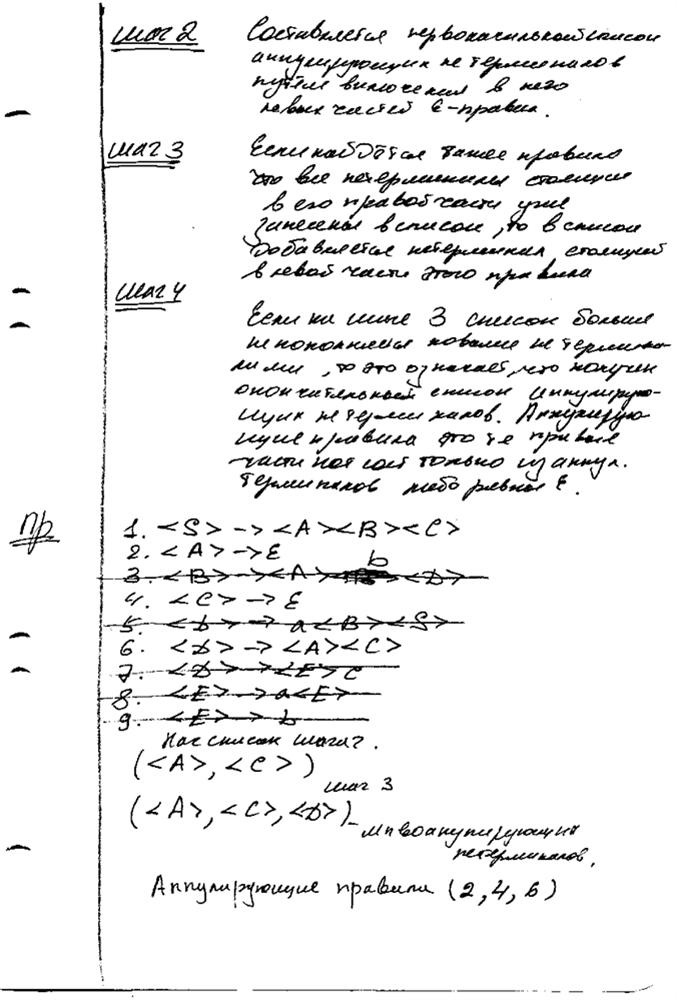 шаг 2 Составляется первоначальной список
аннулирующих нетерминалов
путём включения в него
левых частей ε-правил.
шаг 3 Если найдётся такое правило
что все нетерминалы стоящие
в его правой части уже
занесены в список, то в список
добавляется нетерминал, стоящий
в левой части этого правила
шаг 4
Если на шаге 3 список больше
не пополняется новыми нетермина-
лами, то это означает, что получен
окончательный список аннулирую-
щих нетерминалов. Аннулирую-
щие правила это те правые
части кот сост только из аннул.
терминалов либо равные ε.
пр
1. <S> -> <A><B><C>
2. <A> -> ε
3. <B> -> <A> b <D>
4. <C> -> ε
5. <D> -> a<B><S>
6. <D> -> <A><C>
7. <D> -> <E>c
8. <E> -> a<E>
9. <E> -> b
Нач список шага 2.
(<A>, <C>)
шаг 3
(<A>, <C>, <D>) –
мн-во анулирующих
нетерминалов.
Аннулирующие правила (2, 4, 6)